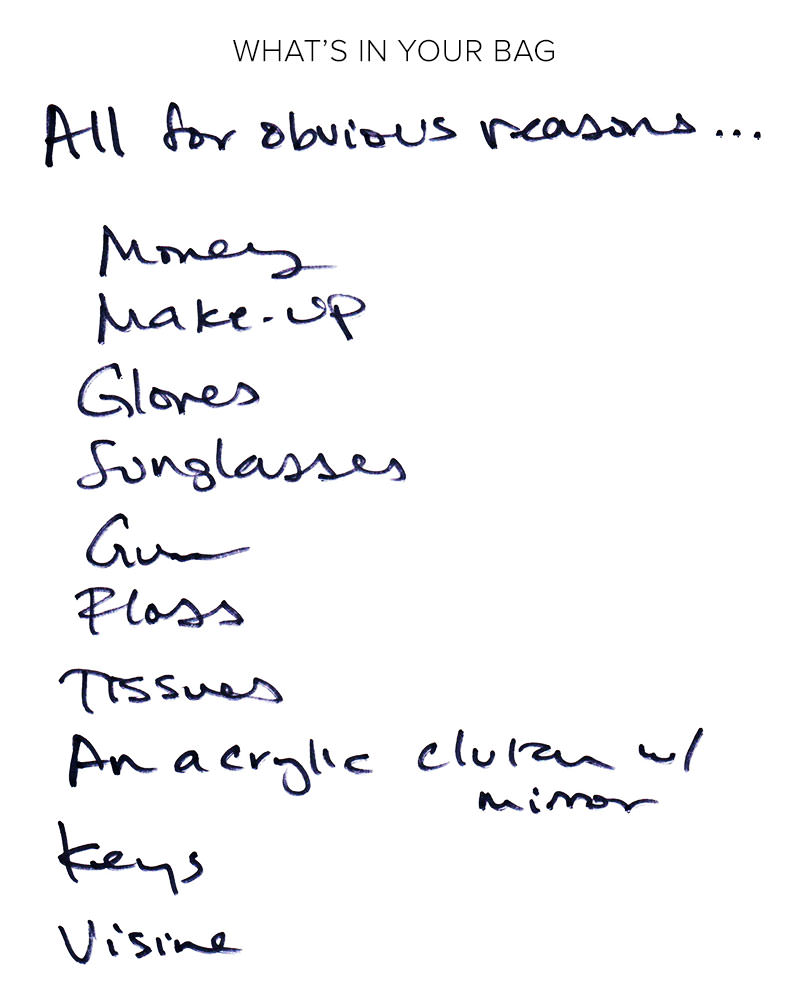 WHAT'S IN YOUR BAG
All for obvious reasons...
Money
Make-up
Gloves
Sunglasses
Gum
Floss
Tissues
An acrylic clutch w/
mirror
Keys
Visine